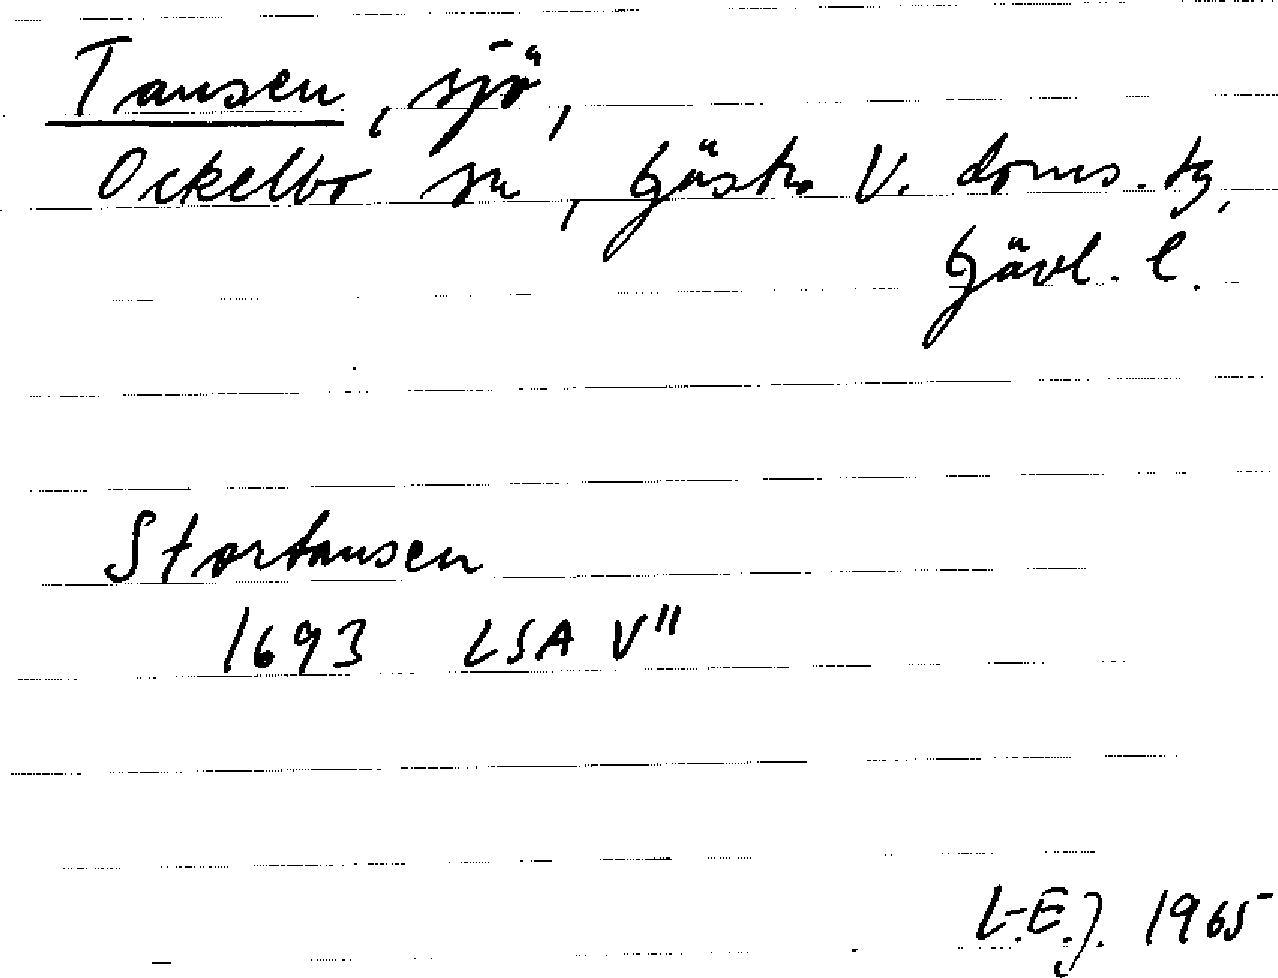 Tansen, sjö,
Ockelbo sn, Gästr. V. doms. tg,
Gävl. l.
Stortansen
1693 LSA V"
L-E.J. 1965